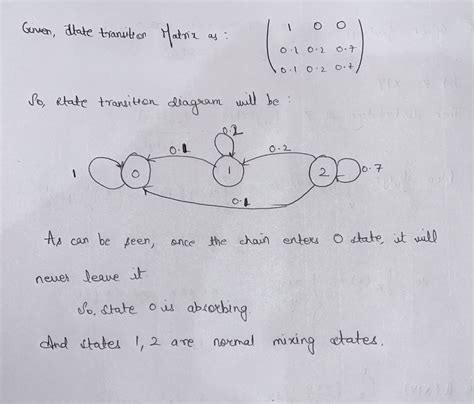 Given, State transition Matrix as :
1 0 0
0.1 0.2 0.7
0.1 0.2 0.7
So, state transition diagram will be :
0.2
0.1
0.2
1
0
1
2
0.7
0.1
As can be seen, once the chain enters 0 state, it will
never leave it
So, state 0 is absorbing.
And states 1, 2 are normal mixing states.